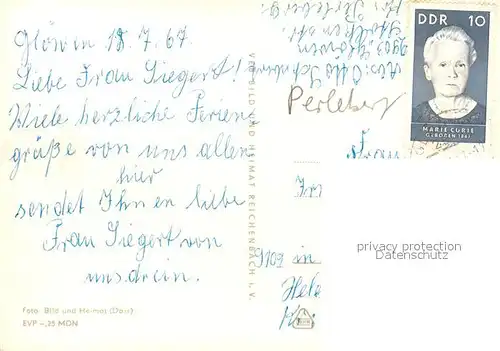 Glöwen 18.7.67.
Liebe Frau Siegert!
Viele herzliche Ferien
grüße von uns allen
hier
sendet Ihnen liebe
Frau Siegert von
uns drein.
Foto: Bild und Heimat (Darr)
EVP –,25 MDN
VEB BILD UND HEIMAT REICHENBACH I. V.
Abs: Otto
Glöwen
Kr. Perleberg
Perleberg
DDR 10
MARIE CURIE
GEBOREN 1867
Frau
9109 in
privacy protection
Datenschutz